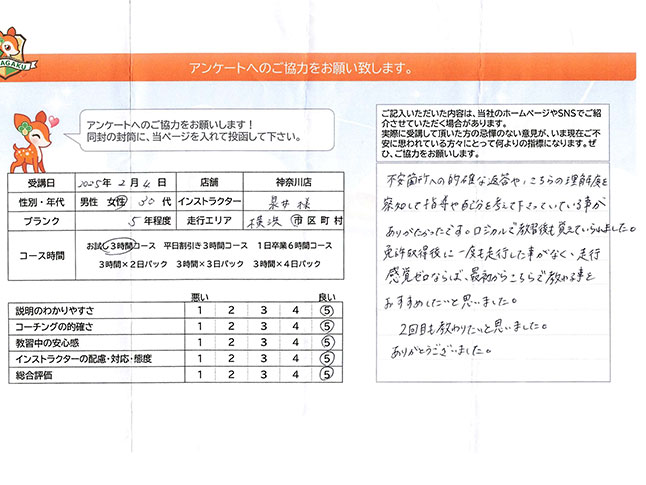 AGAKU
アンケートへのご協力をお願い致します。
アンケートへのご協力をお願いします！
同封の封筒に、当ページを入れて投函して下さい。
受講日 2025年 2月 4日 店舗 神奈川店
性別・年代 男性 女性 30代 インストラクター 泉井様
ブランク 5年程度 走行エリア 横浜 市区町村
コース時間
お試し3時間コース 平日割引き3時間コース 1日卒業6時間コース
3時間×2日パック 3時間×3日パック 3時間×4日パック
悪い 良い
説明のわかりやすさ 1 2 3 4 5
コーチングの的確さ 1 2 3 4 5
教習中の安心感 1 2 3 4 5
インストラクターの配慮・対応・態度 1 2 3 4 5
総合評価 1 2 3 4 5
ご記入いただいた内容は、当社のホームページやSNSでご紹
介させていただく場合があります。
実際に受講して頂いた方の忌憚のない意見が、いま現在ご不
安に思われている方々にとって何よりの指標になります。ぜ
ひ、ご協力をお願いします。
不安箇所への的確な返答や、こちらの理解度を
察知して指導や配分を考えて下さっていている事が
ありがたかったです。ロジカルで教習後も覚えていられました。
免許取得後に一度も走行した事がなく、走行
感覚ゼロならば、最初からこちらで教わる事を
おすすめしたいと思いました。
2回目も教わりたいと思いました。
ありがとうございました。